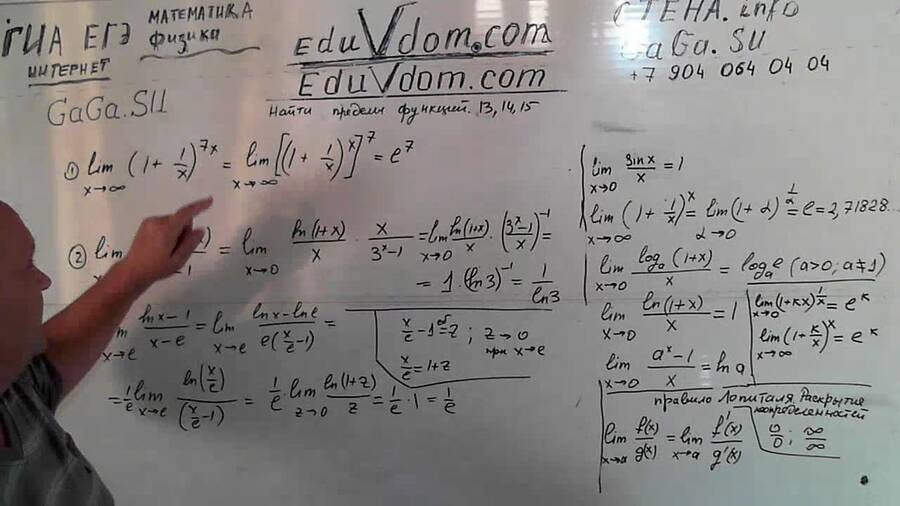 ГИА ЕГЭ МАТЕМАТИКА
физика
ИНТЕРНЕТ
GaGa.SU
EduVdom.com
EduVdom.com
Найти пределы функций. 13, 14, 15
СТЕНА.info
GaGa.SU
+7 904 064 04 04
① lim x→∞ (1 + 1/x)^7x = lim x→∞ [(1 + 1/x)^x]^7 = e^7
② lim = lim x→0 ln(1+x)/x · x/(3^x-1) = lim x→0 ln(1+x)/x · ((3^x-1)/x)^-1 =
= 1·(ln3)^-1 = 1/ln3
x→e (lnx-1)/(x-e) = lim x→e (lnx-lne)/(e(x/e-1)) =
= 1/e lim x→e ln(x/e)/(x/e-1) = 1/e lim z→0 ln(1+z)/z = 1/e · 1 = 1/e
x/e - 1 об= z ; z→0
при x→e
x/e = 1+z
lim x→0 sinx/x = 1
lim x→∞ (1 + 1/x)^x = lim α→0 (1+α)^1/α = e = 2,71828...
lim x→0 log_a(1+x)/x = log_a e (a>0; a≠1)
lim x→0 ln(1+x)/x = 1
lim x→0 (a^x-1)/x = lna
lim x→0 (1+кx)^1/x = e^к
lim x→∞ (1+к/x)^x = e^к
правило Лопиталя. Раскрытие
неопределенностей
lim x→a f(x)/g(x) = lim x→a f'(x)/g'(x)
0/0 ; ∞/∞